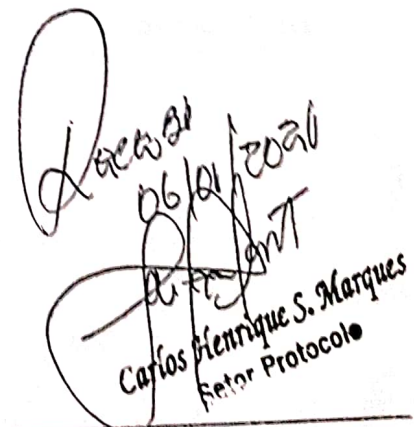 Recebi
06/01/2021
Carlos Henrique S. Marques
Setor Protocolo